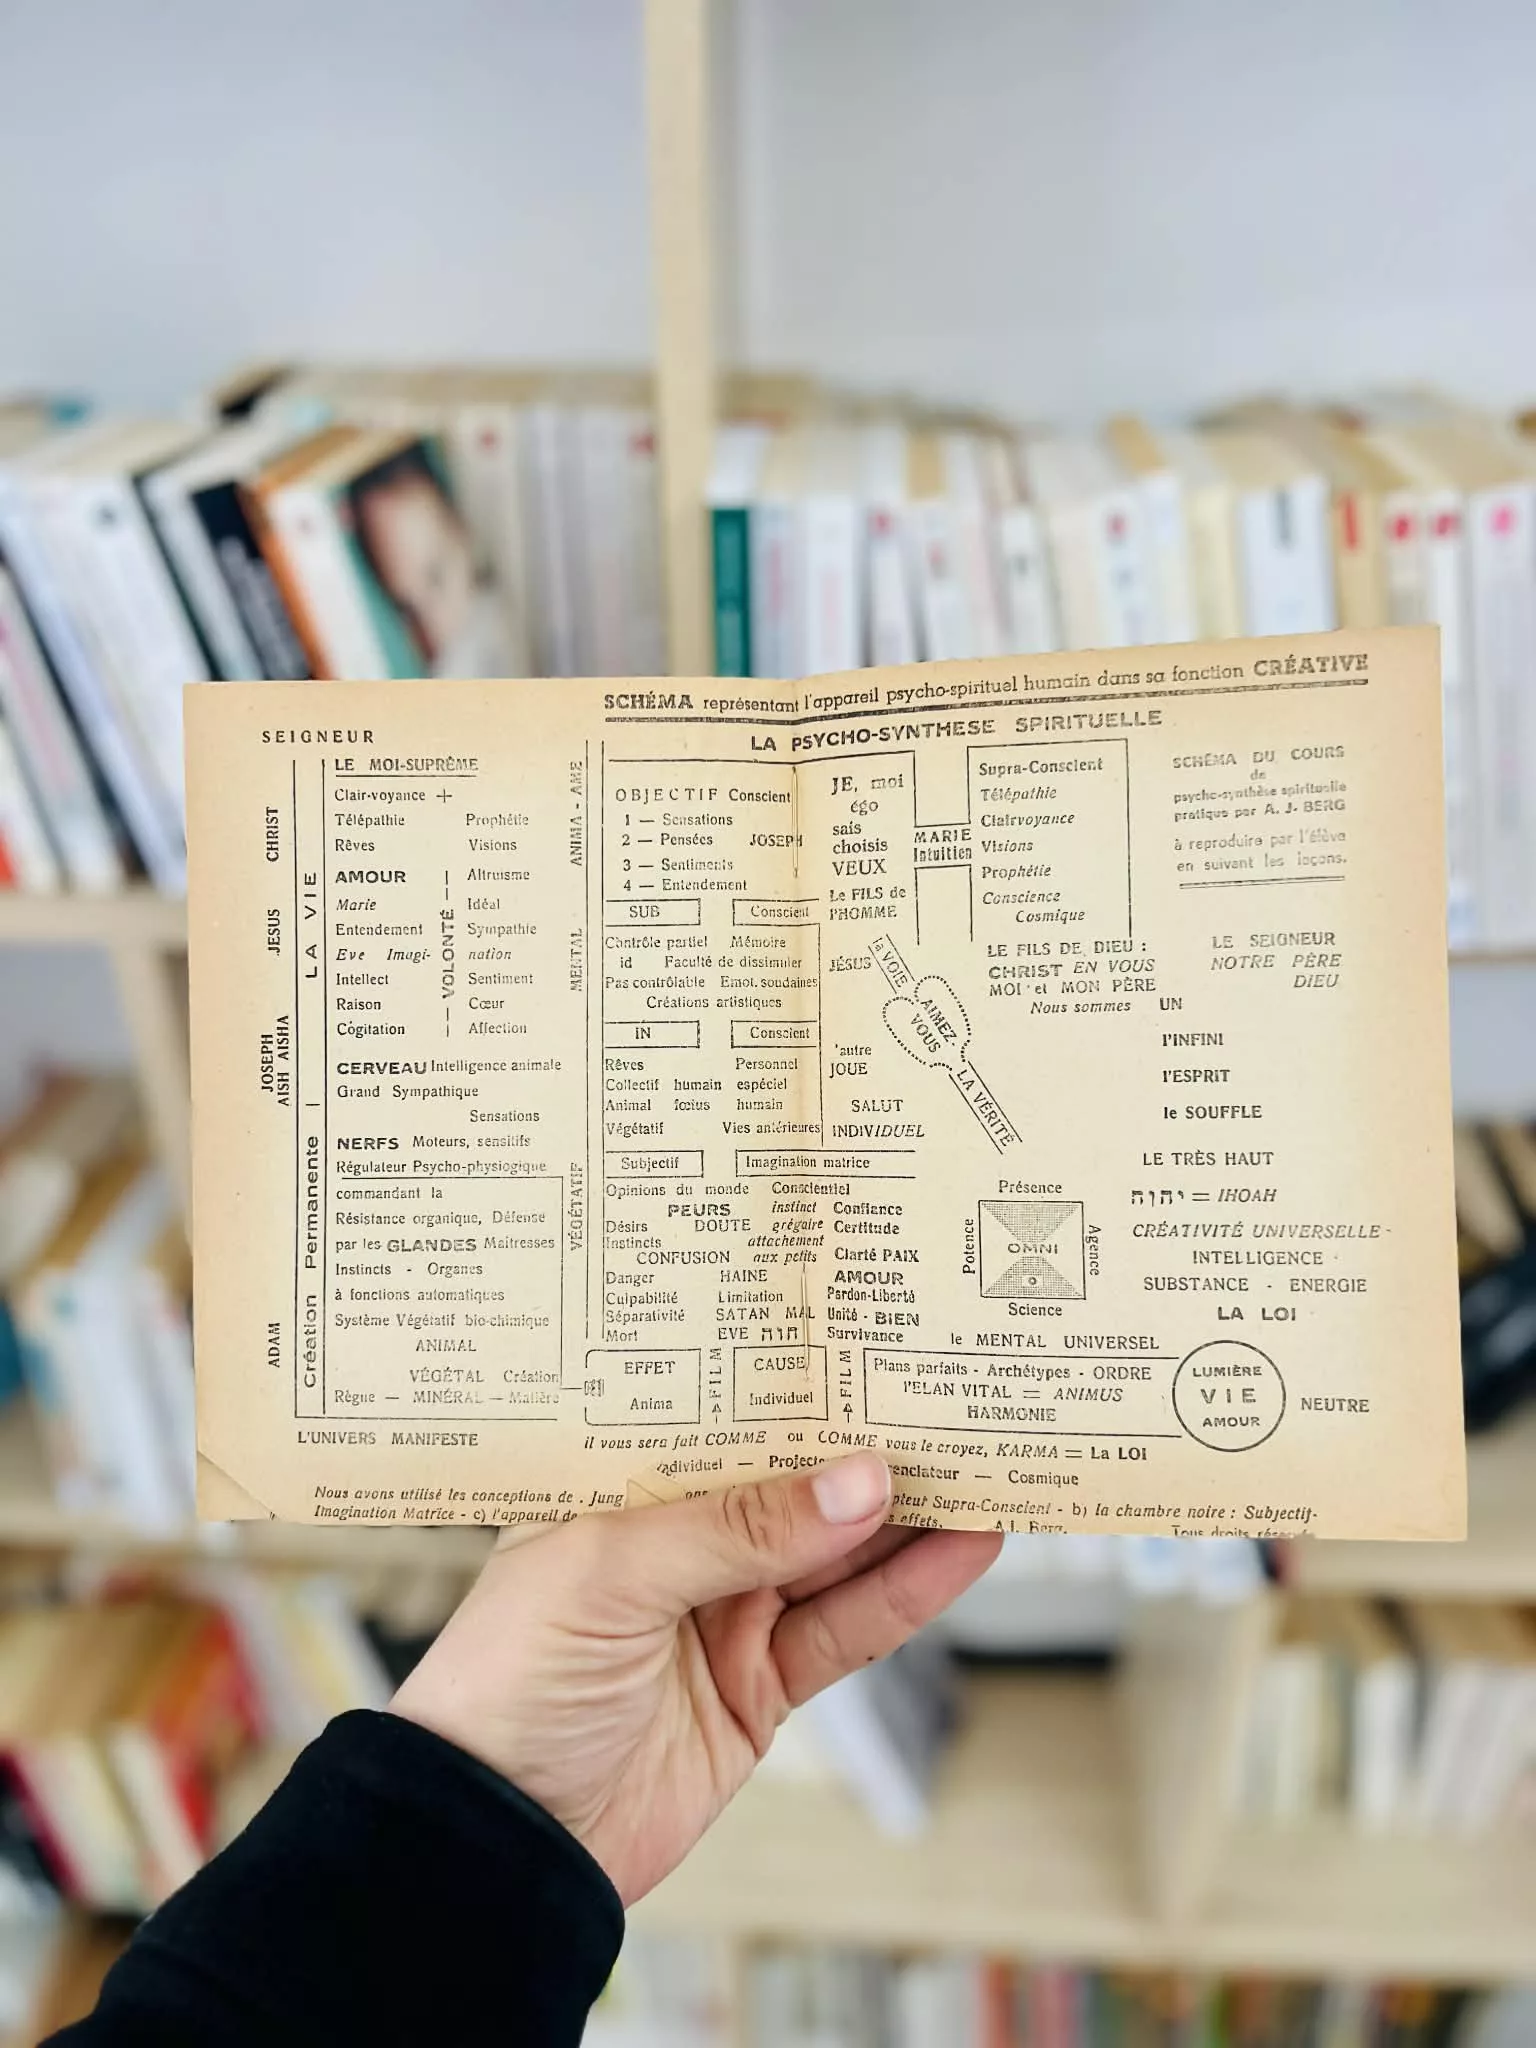 SCHÉMA représentant l'appareil psycho-spirituel humain dans sa fonction CRÉATIVE
LA PSYCHO-SYNTHESE SPIRITUELLE
SEIGNEUR
CHRIST
JESUS
JOSEPH
AISH AISHA
ADAM
Création Permanente | LA VIE
LE MOI-SUPRÊME
Clair-voyance +
Télépathie Prophétie
Rêves Visions
AMOUR Altruisme
Marie Idéal
Entendement Sympathie
Eve Imagi- nation
Intellect Sentiment
Raison Cœur
Cogitation Affection
— VOLONTÉ —
CERVEAU Intelligence animale
Grand Sympathique
Sensations
NERFS Moteurs, sensitifs
Régulateur Psycho-physiogique
commandant la
Résistance organique, Défense
par les GLANDES Maîtresses
Instincts - Organes
à fonctions automatiques
Système Végétatif bio-chimique
ANIMAL
VÉGÉTAL Création
Règne — MINÉRAL — Matière
L'UNIVERS MANIFESTE
ANIMA - AME
MENTAL
VÉGÉTATIF
OBJECTIF Conscient
1 — Sensations
2 — Pensées JOSEPH
3 — Sentiments
4 — Entendement
SUB Conscient
Contrôle partiel Mémoire
id Faculté de dissimuler
Pas contrôlable Emot. soudaines
Créations artistiques
IN Conscient
Rêves Personnel
Collectif humain espéciel
Animal fœtus humain
Végétatif Vies antérieures
Subjectif Imagination matrice
Opinions du monde Conscientiel
PEURS instinct Confiance
Désirs DOUTE grégaire Certitude
Instincts attachement
CONFUSION aux petits Clarté PAIX
Danger HAINE AMOUR
Culpabilité Limitation Pardon-Liberté
Séparativité SATAN MAL Unité - BIEN
Mort EVE Survivance
EFFET
Anima
FILM
CAUSE
Individuel
FILM
JE, moi
égo
sais
choisis
VEUX
Le FILS de
l'HOMME
JÉSUS
'autre
JOUE
SALUT
INDIVIDUEL
MARIE
Intuition
Supra-Conscient
Télépathie
Clairvoyance
Visions
Prophétie
Conscience
Cosmique
la VOIE
AIMEZ-
VOUS
LA VÉRITÉ
LE FILS DE DIEU :
CHRIST EN VOUS
MOI et MON PÈRE
Nous sommes UN
SCHÉMA DU COURS
de
psycho-synthèse spirituelle
pratique par A. J. BERG
à reproduire par l'élève
en suivant les leçons.
LE SEIGNEUR
NOTRE PÈRE
DIEU
l'INFINI
l'ESPRIT
le SOUFFLE
LE TRÈS HAUT
יהוה = IHOAH
CRÉATIVITÉ UNIVERSELLE -
INTELLIGENCE -
SUBSTANCE - ENERGIE
LA LOI
Présence
Potence
OMNI
Agence
Science
le MENTAL UNIVERSEL
Plans parfaits - Archétypes - ORDRE
l'ELAN VITAL = ANIMUS
HARMONIE
LUMIÈRE
VIE
AMOUR
NEUTRE
il vous sera fait COMME ou COMME vous le croyez, KARMA = La LOI
— Cosmique
Nous avons utilisé les conceptions de . Jung
Supra-Conscient - b) la chambre noire : Subjectif-
Imagination Matrice - c) l'appareil de
effets. A.J. Berg. Tous droits